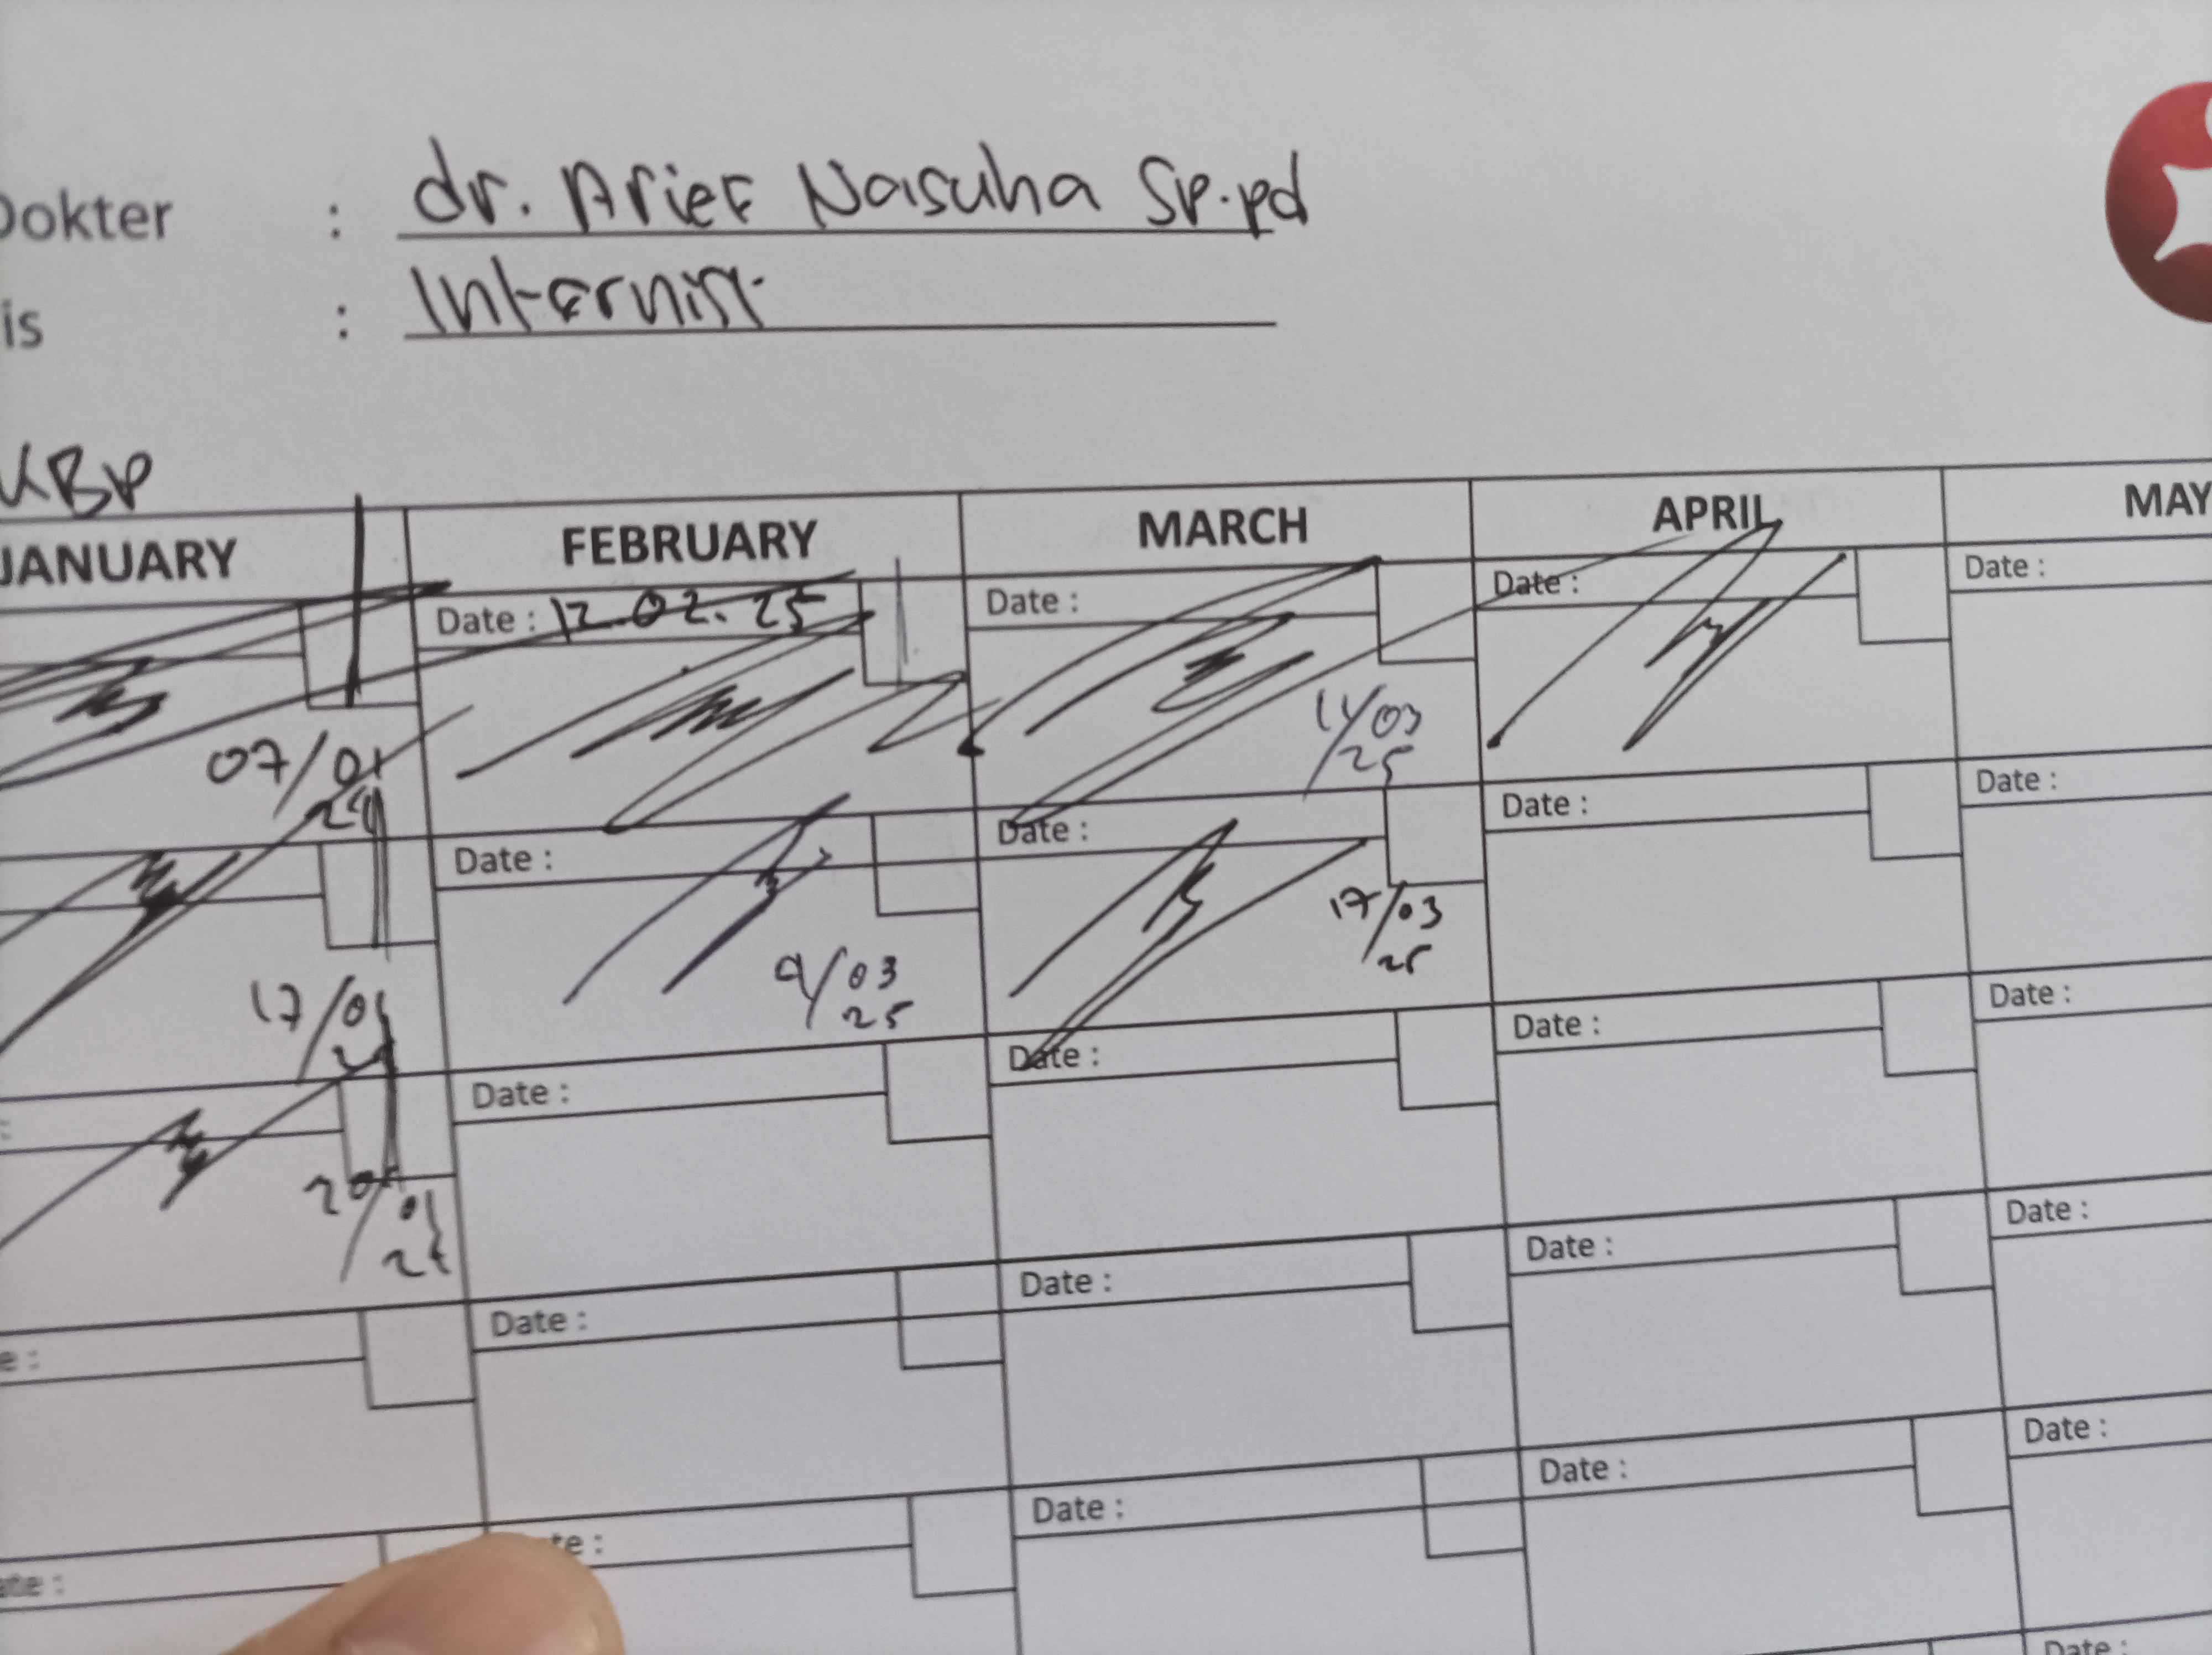 Dokter : dr. Arief Nasuha Sp.pd
is : Internist
KBP
JANUARY FEBRUARY MARCH APRIL MAY
Date : 12.02.25 Date : Date : Date :
07/01
11/03
25
Date : Date : Date : Date :
17/01
9/03
25
17/03
25
Date : Date : Date : Date :
20/01
e : Date : Date : Date : Date :
ate : te : Date : Date : Date :
Date :